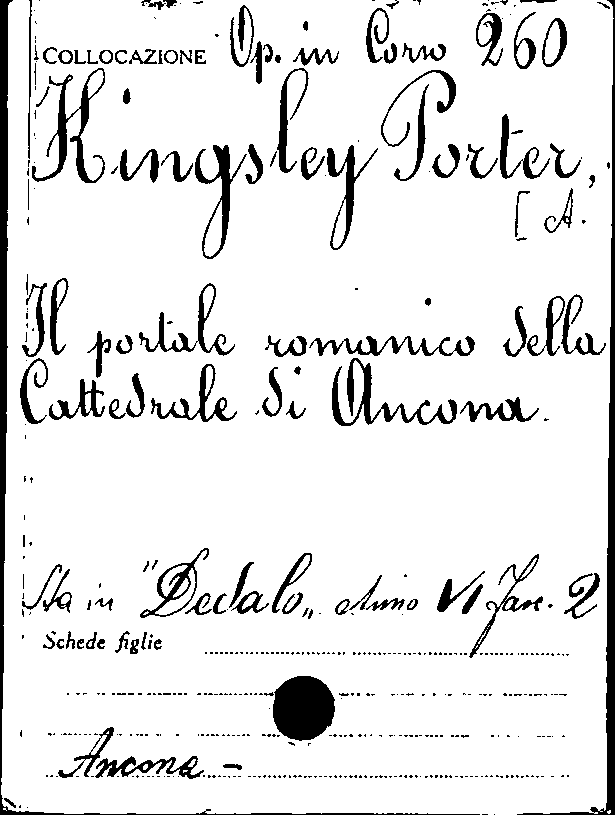 COLLOCAZIONE Op. in Corso 260
Kingsley Porter,
[A.
Il portale romanico della
Cattedrale di Ancona.
Sta in "Dedalo„ Anno VI Fasc. 2
Schede figlie
Ancona -